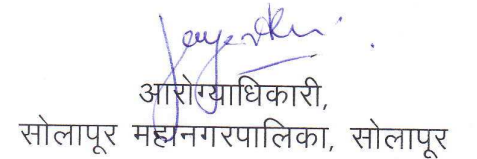 आरोग्याधिकारी,
सोलापूर महानगरपालिका, सोलापूर